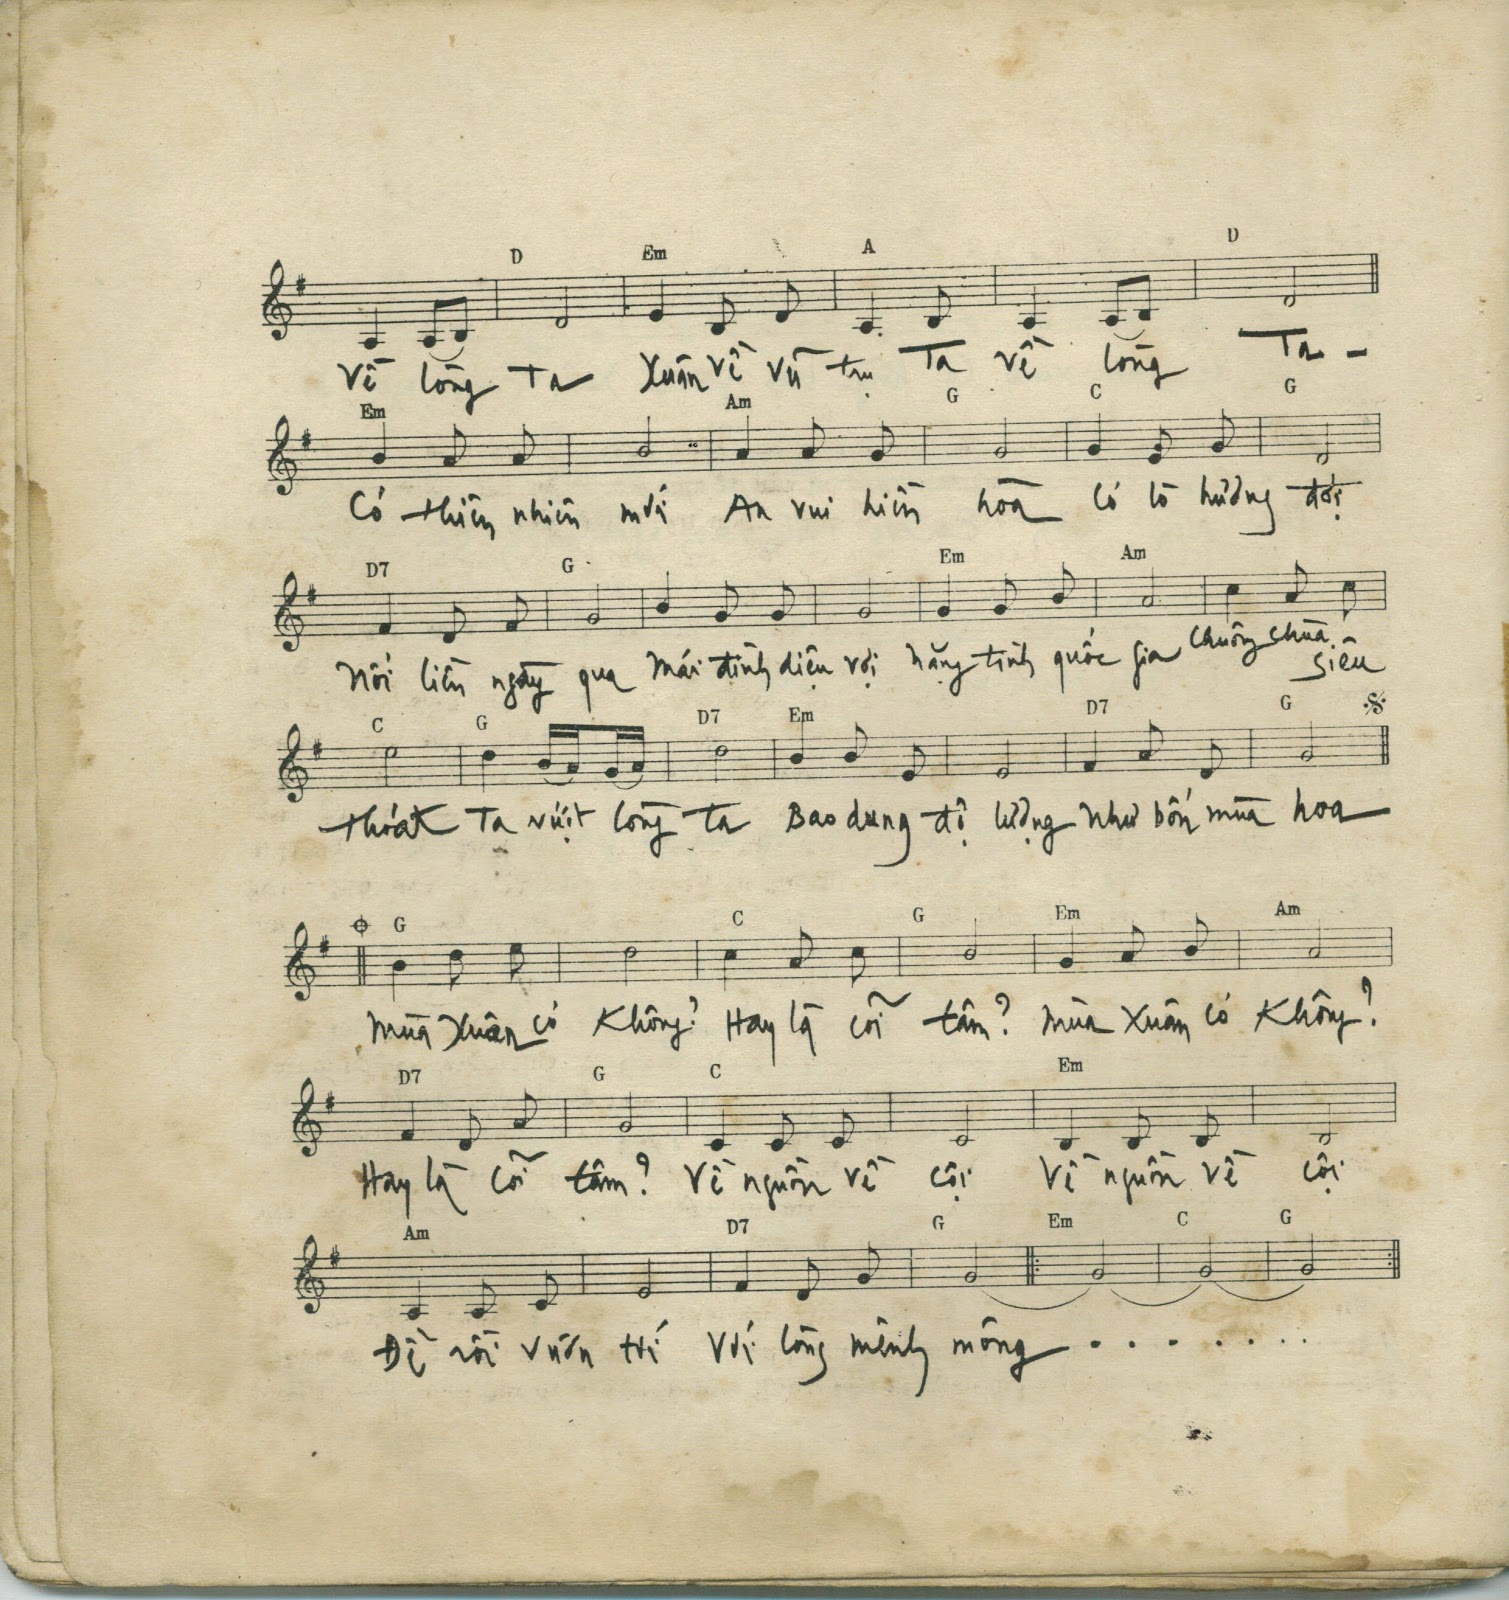 D Em A D
Về lòng Ta Xuân về vũ trụ Ta về lòng Ta
Em Am G C G
Có thiên nhiên mới An vui hiền hòa Có lò hương đợi
D7 G Em Am
Nối liền ngày qua Mái đình diệu vợi nặng tình quốc gia Chuông chùa siêu
C G D7 Em D7 G
thoát Ta vượt lòng ta Bao dung độ lượng Như bốn mùa hoa
G C G Em Am
Mùa Xuân có Không? Hay là cõi tâm? Mùa Xuân có Không?
D7 G C Em
Hay là cõi tâm? Về nguồn về cội Về nguồn về cội
Am D7 G Em C G
Để rồi vươn tới Với lòng mênh mông . . . . . . . .